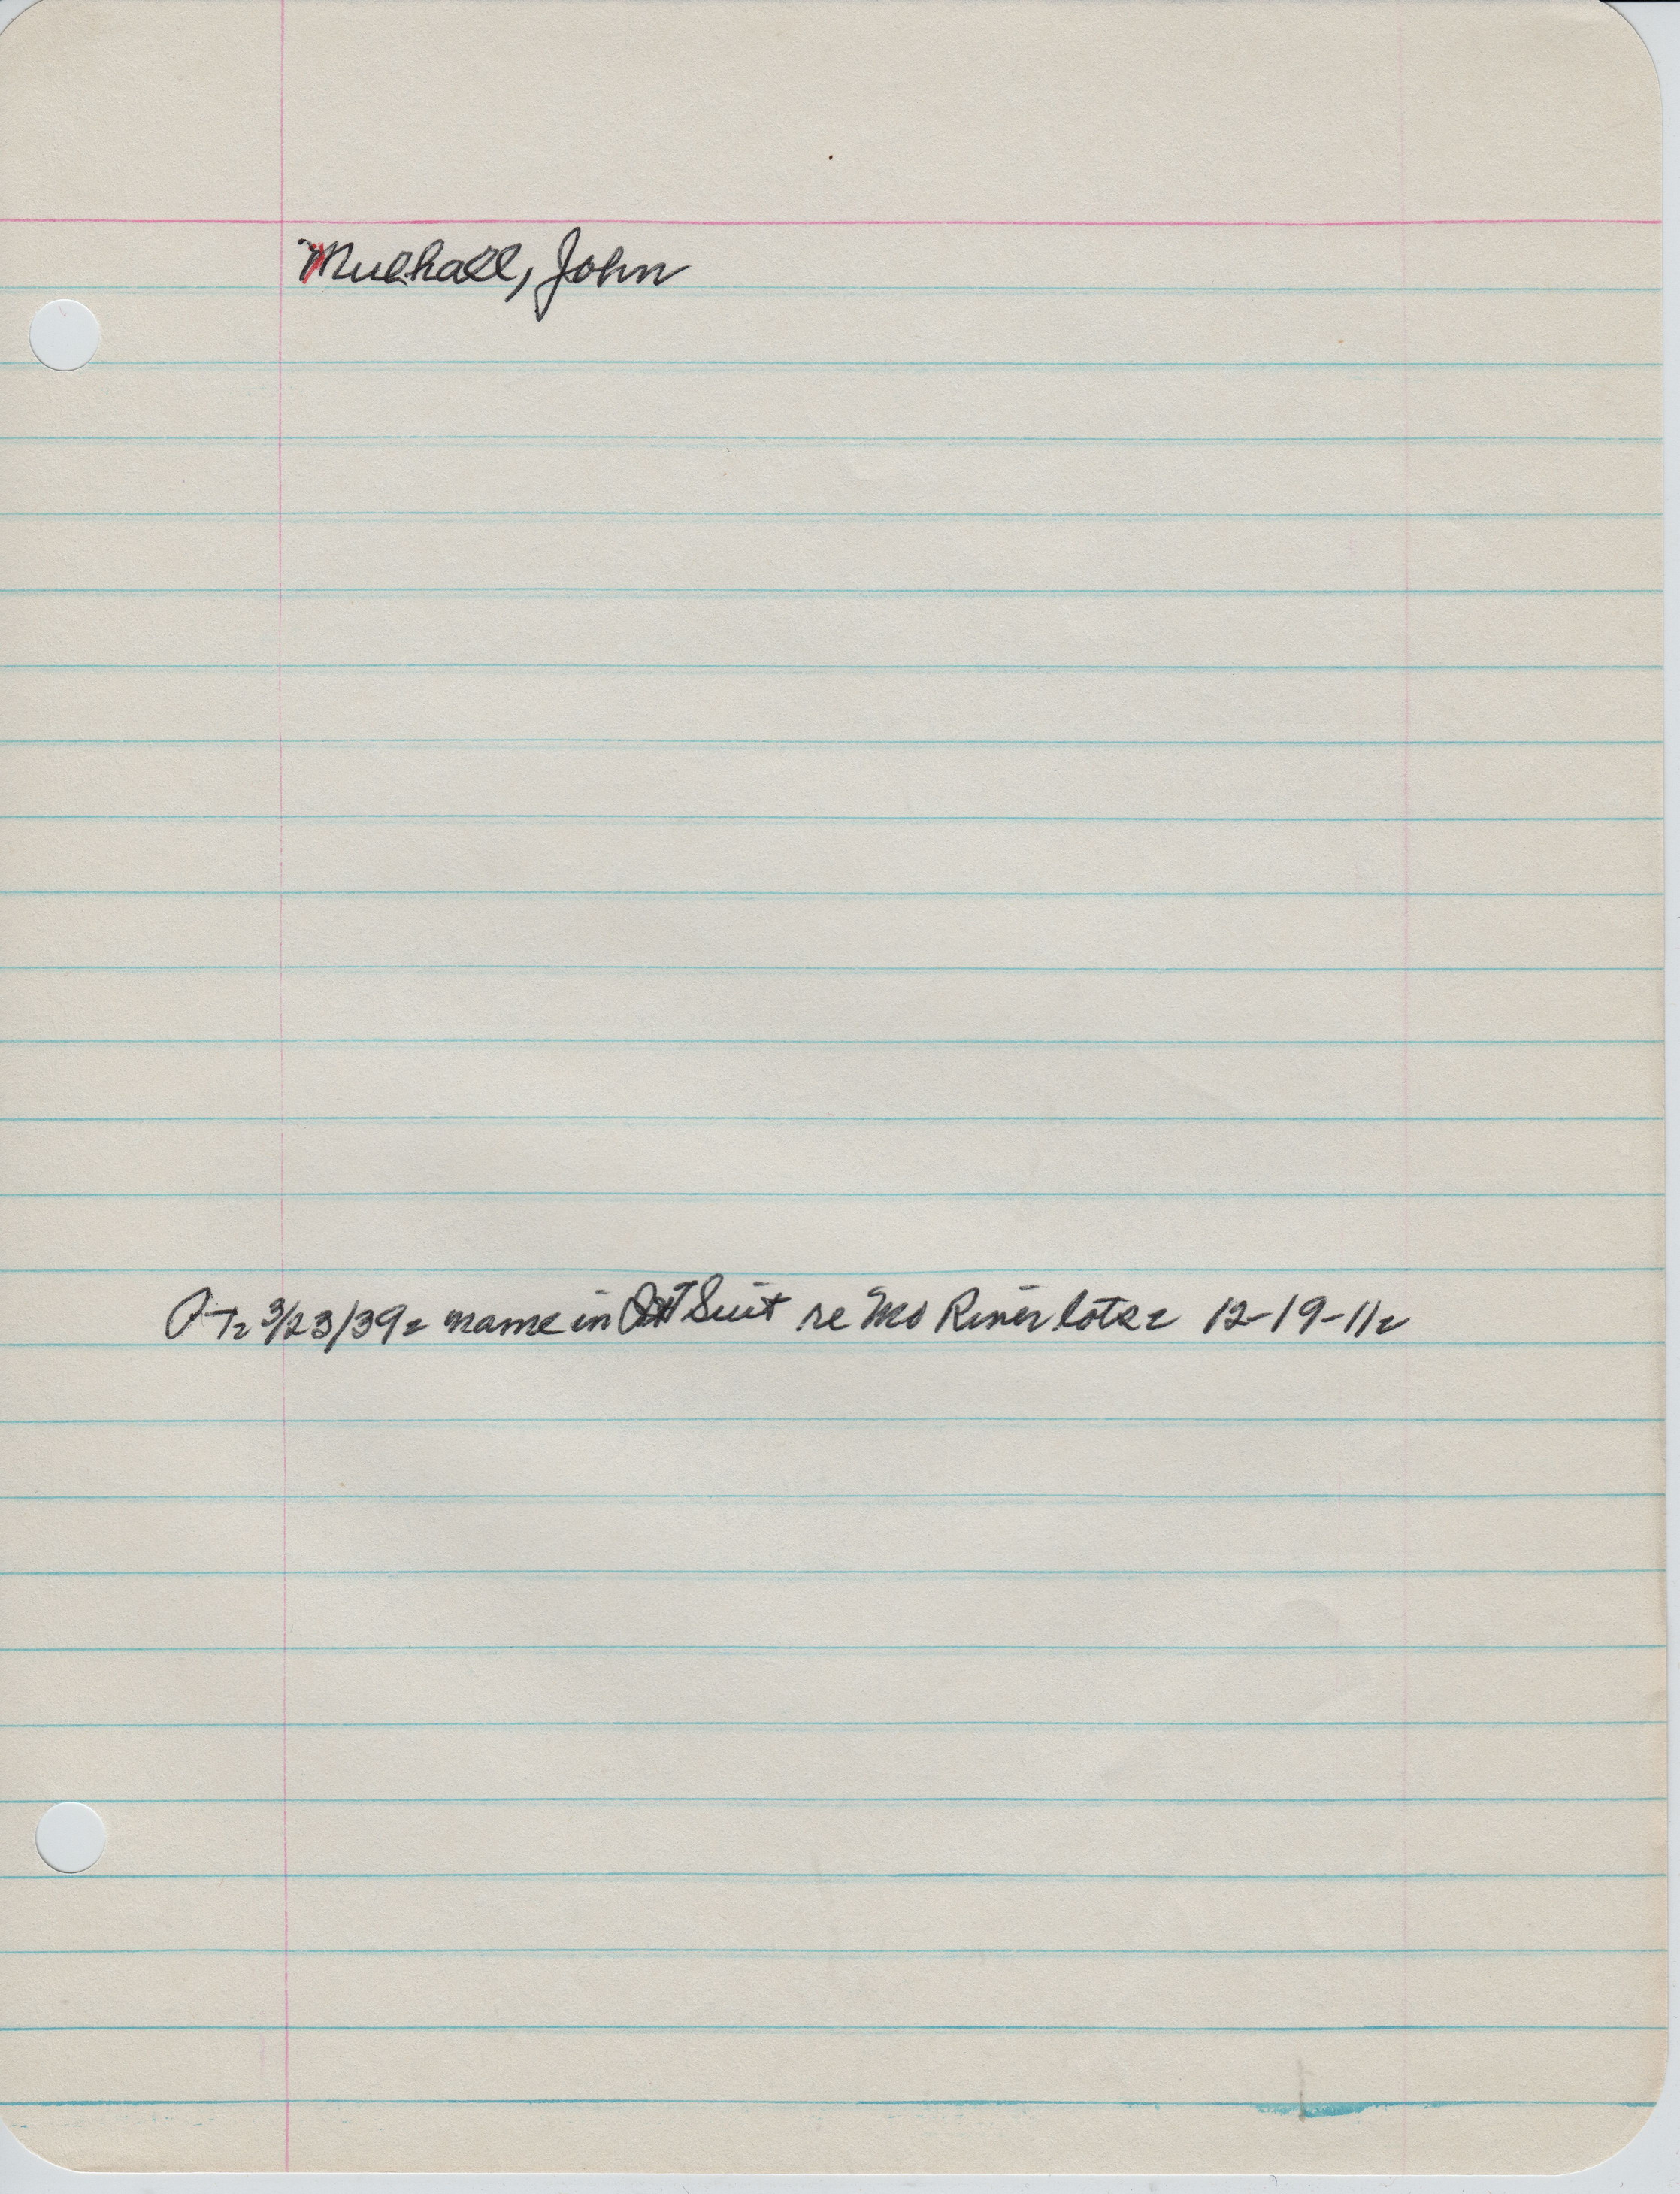 Mulhall, John
PT= 3/23/39= name in QT Suit re Mo River lots= 12-19-11=